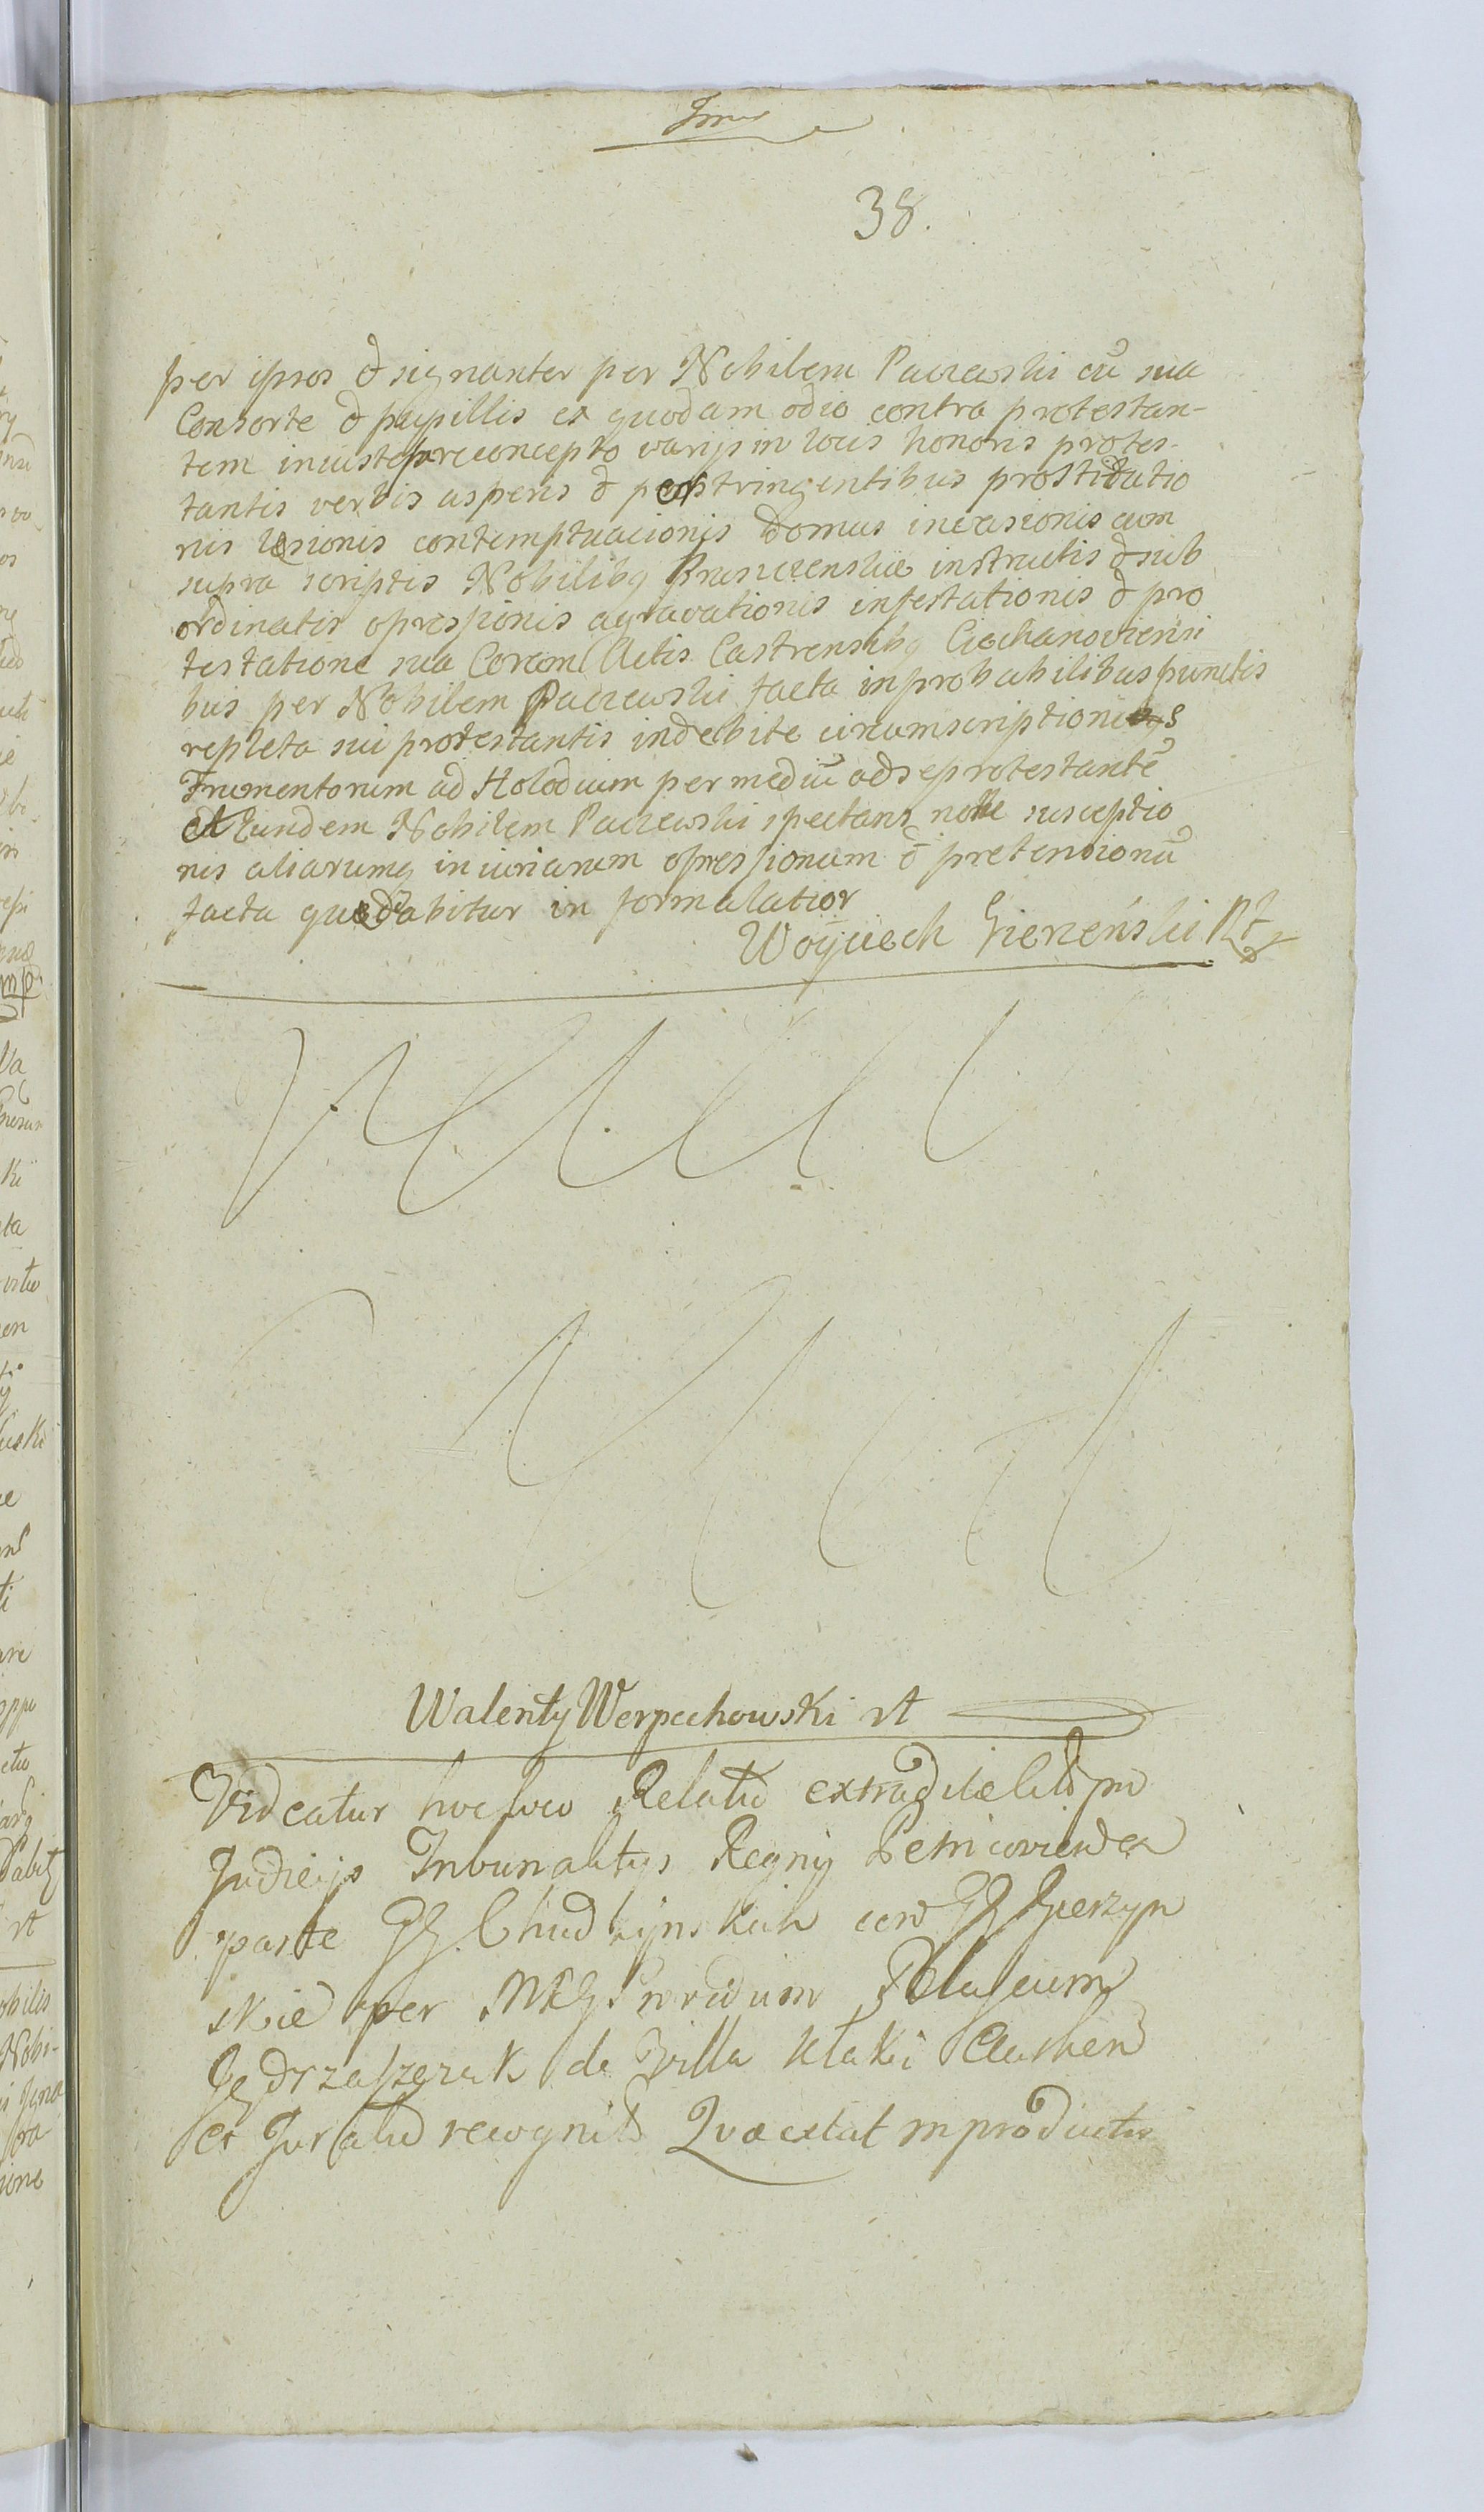 38.
per ipsos & signanter per Nobilem Paczewski cū sua
Consorte & pupillis ex quodam odio contra protestan-
tem iniuste preconcepto varijs in locis honoris protes-
tantis verbis asperis & perstringentibus prostitutio
nis lesionis contemptuacionis Domus invasionis cum
supra scriptis Nobilibq instructis & sub
ordinatis opressionis agravationis infestationis & pro
testatione sua Coram Actis Castrensibq Ciechanoviensi
bus per Nobilem Paczewski facta inprobabilibus punctis
repleta sui protestantis indebite circumscriptionis
Frumentorum ad Holodium per mediū ad se protestantē
et Eundem Nobilem Paczewski spectans nolle susceptio
nis aliarumq iniuriarum opressionum & pretensionū
facta quæ dabitur in forma latior
Woyciech Gierzeński Rt
Walenty Werpechowski rt
Videatur hoc loco Relatio
Judicijs Tribunalitijs Regnij
parte GG. Chudzynskich
skie per
de Villa
et Jurato recognita Quæ extat in productis